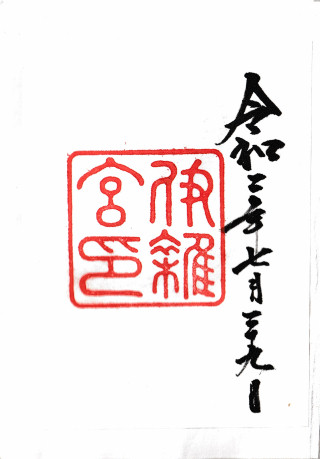 令和二年七月二十九日
伊雜
宮印